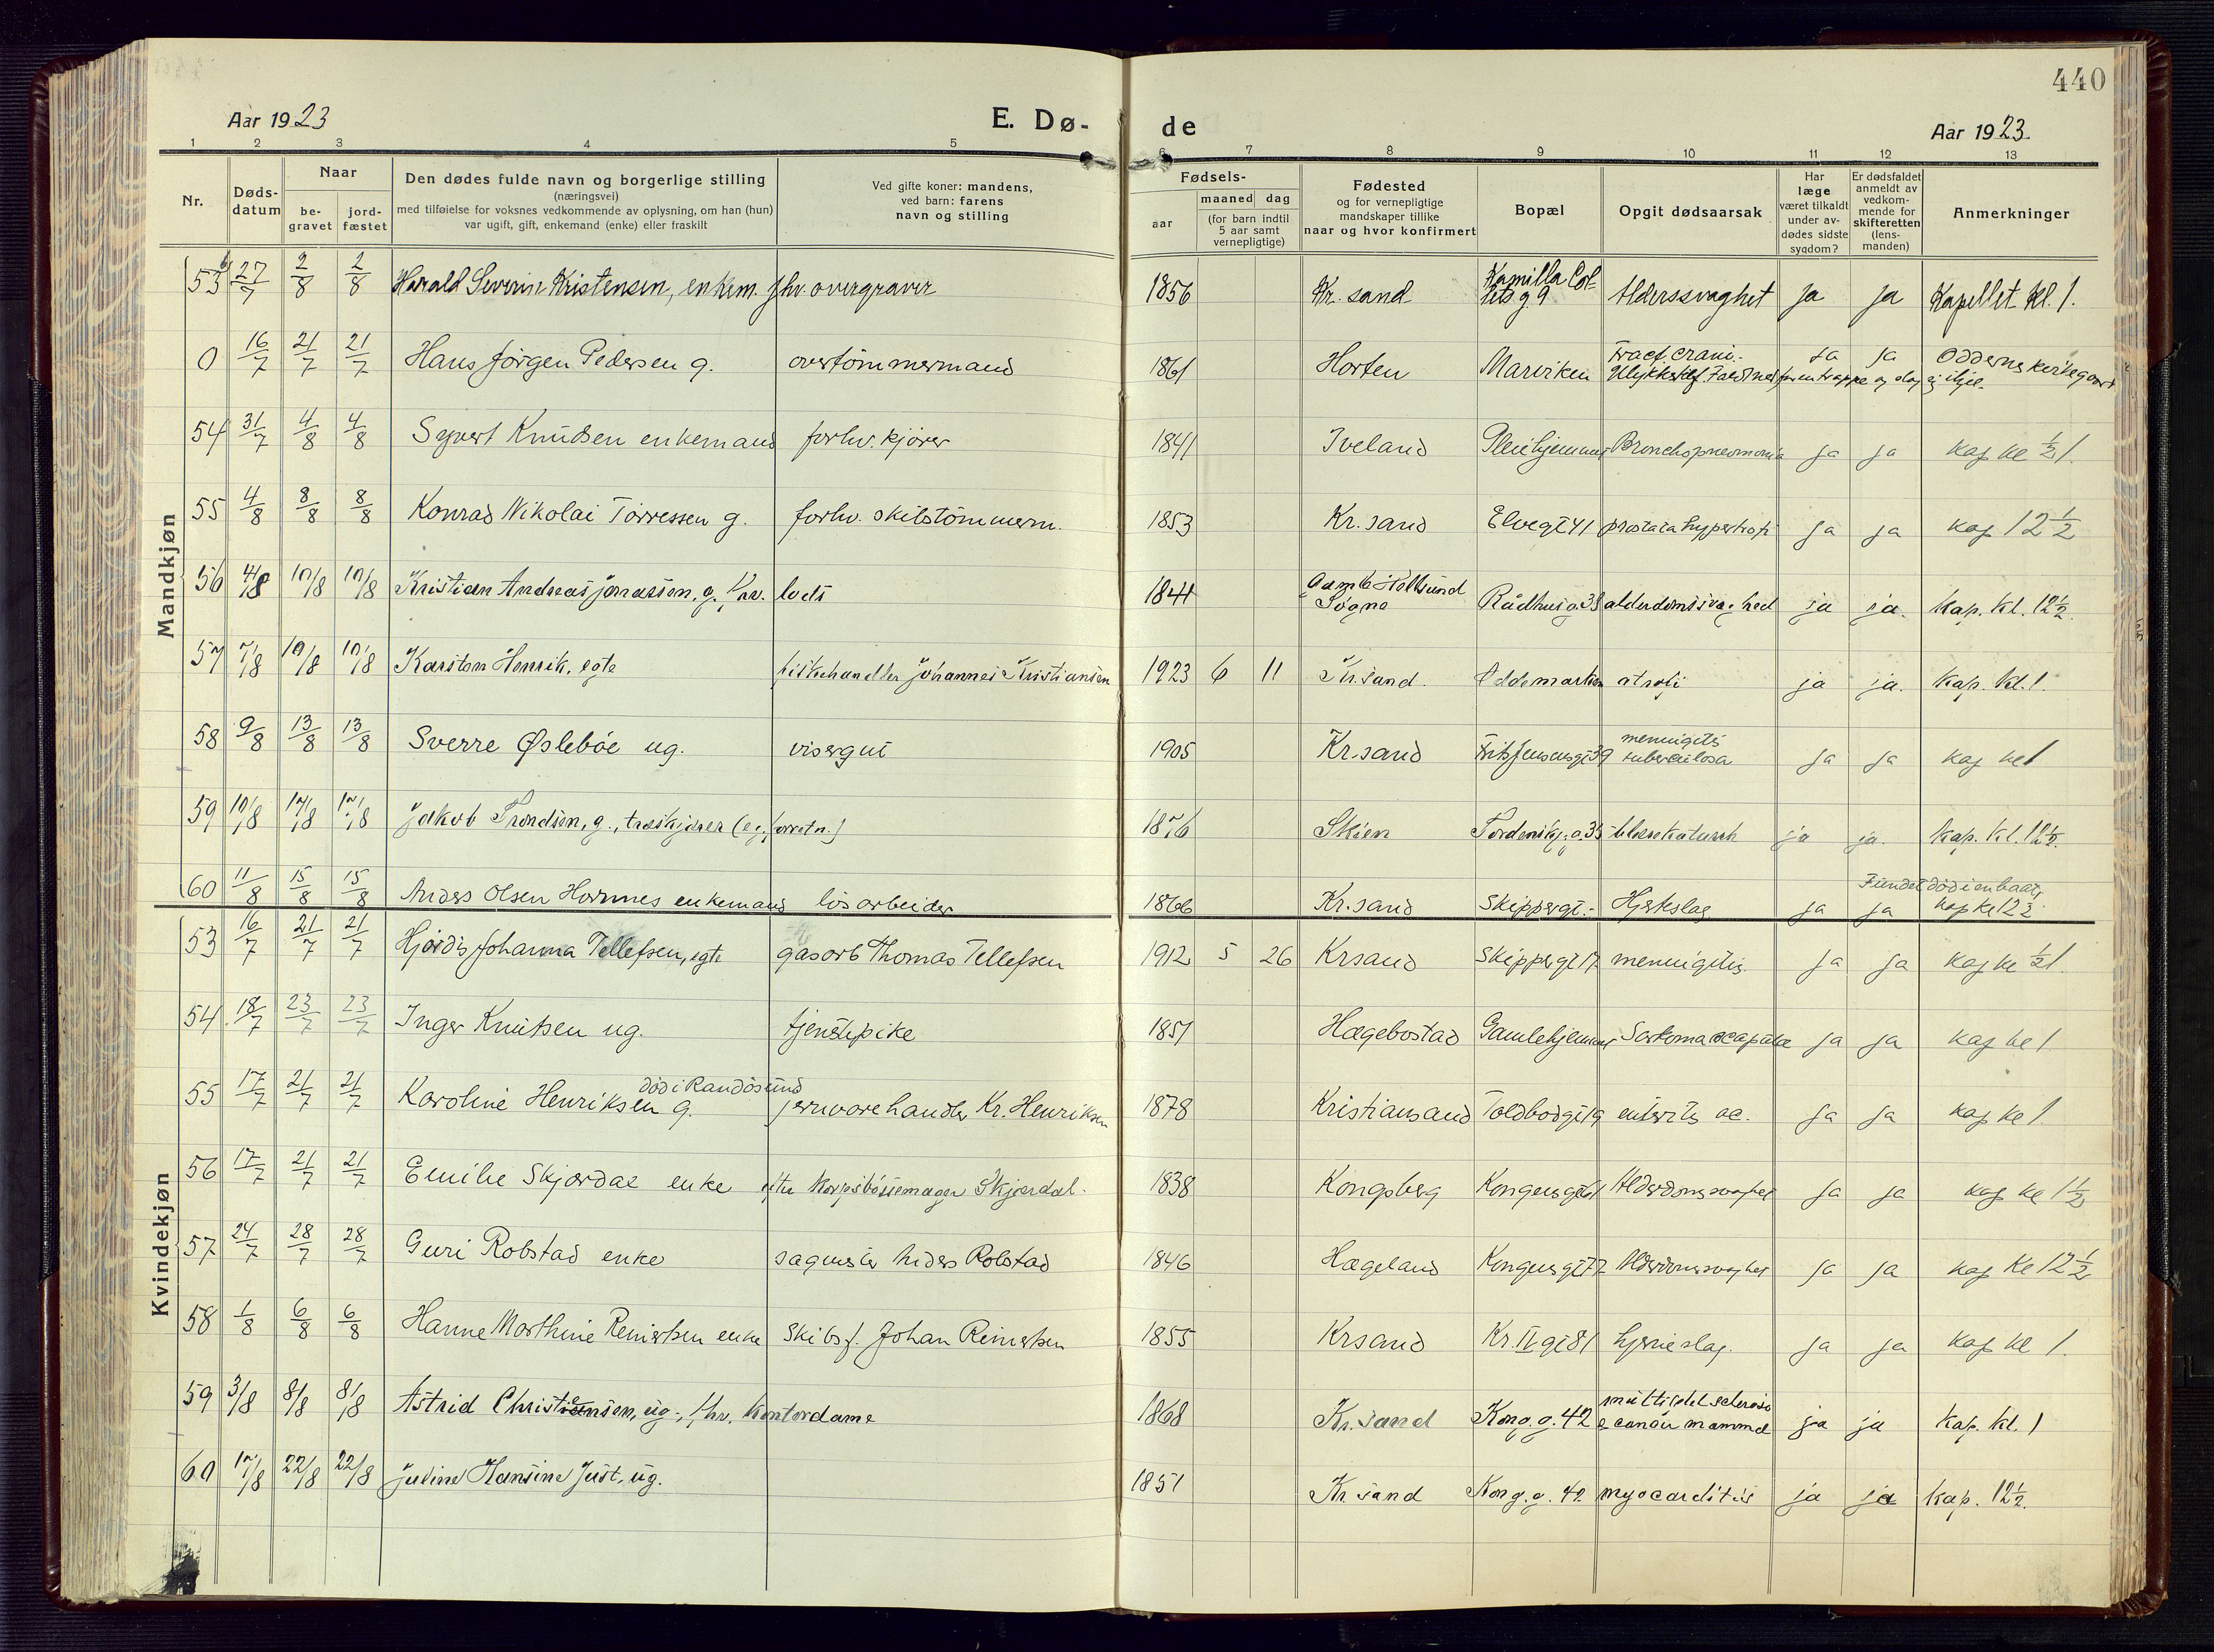 440
Aar 1923
E. Dø-
de
Aar 1923.
1 2 3 4 5 6 7 8 9 10 11 12 13
Nr.
Døds-
datum
Naar
be-
gravet
jord-
fæstet
Den dødes fulde navn og borgerlige stilling
(næringsvei)
med tilføielse for voksnes vedkommende av oplysning, om han (hun)
var ugift, gift, enkemand (enke) eller fraskilt
Ved gifte koner: mandens,
ved barn: farens
navn og stilling
Fødsels-
aar
maaned dag
(for barn indtil
5 aar samt
vernepligtige)
Fødested
og for vernepligtige
mandskaper tillike
naar og hvor konfirmert
Bopæl
Opgit dødsaarsak
Har
læge
været tilkaldt
under av-
dødes sidste
sygdom?
Er dødsfaldet
anmeldt av
vedkom-
mende for
skifteretten
(lens-
manden)
Anmerkninger
Mandkjøn
53 27/7 2/8 2/8 Harald Severin Kristensen, enkem. fhv. overgraver 1856 Kr. sand Kamilla Col-
lets g 9 Alderssvaghet ja ja Kapellet Kl. 1.
0 16/7 21/7 21/7 Hans Jörgen Pedersen g. overtömmermand 1861 Horten Marviken Fract. crani. ja ja Oddernes kirkegaard
54 31/7 4/8 4/8 Syvert Knudsen enkemand forhv. kjörer 1841 Iveland Pleiehjemmet Bronchopneumonia ja ja kap kl ½ 1.
55 4/8 8/8 8/8 Konrad Nikolai Törressen g. forhv. skibstömmerm. 1853 Kr. sand Elvegt 41 prostata hypertrofi ja ja kap 12 ½
56 4/8 10/8 10/8 Kristian Andreas Jonassen, g. fhv. lods 1841 Gamle Hellesund
Søgne Rådhusg. 38 alderdomssvaghed ja ja. Kap. Kl. 12½.
57 7/8 10/8 10/8 Karsten Henrik, egte fiskehandler Johannes Kristiansen 1923 6 11 Kr. sand. Oddemarken atrofi ja ja. Kap. Kl. 1.
58 9/8 13/8 13/8 Sverre Øsleböe ug. visergut 1905 Kr. sand Frits Jensensgt 39 meningitis
tuberculosa ja ja kap kl 1
59 10/8 17/8 17/8 Jakob Trondsen, g., træskjærer (eg. forretn.) 1876 Skien Tordenskj. g. 35 blærekatarrh ja ja. Kap. Kl. 12½.
60 11/8 15/8 15/8 Anders Olsen Hornnes enkemand lösarbeider 1866 Kr. sand Skippergt. - Hjerteslag ja ja Fundet död i en baat,
kap kl 12 ½.
Kvindekjøn
53 16/7 21/7 21/7 Hjördis Johanna Tellefsen, egte gasarb Thomas Tellefsen 1912 5 26 Krsand Skippergt 17 meningitis. ja ja kap kl ½ 1.
54 18/7 23/7 23/7 Inger Knutsen ug. tjenestepike 1851 Hægebostad Gamlehjemmet Sarkoma scapulæ ja ja kap kl 1
55 17/7 21/7 21/7 Karoline Henriksen g. död i Randösund jernvarehandler Kr. Henriksen 1878 Kristiansand Toldbodgt 19 enteritis ac. ja ja kap kl 1.
56 17/7 21/7 21/7 Emilie Skjærdal enke efter korpsbössemager Skjærdal. 1838 Kongsberg Kongensgt 61 Alderdomssvaghet ja ja kap kl 1 ½
57 24/7 28/7 28/7 Guri Robstad enke sagmester Anders Robstad 1846 Hægeland Kongensgt 77 Alderdomssvaghet ja ja kap Kl 12 ½
58 1/8 6/8 6/8 Hanne Marthine Reinertsen enke skibsf. Johan Reinertsen 1855 Krsand Kr. IV gt 81 hjerneslag. ja ja kap kl 1.
59 3/8 8/8 8/8 Astrid Christensen, ug., fhv. kontordame 1868 Kr. sand Kong. g. 42 multipel sclerose
cancer mammæ ja ja Kap. Kl. 1
60 17/8 22/8 22/8 Juline Hansine Just, ug. 1851 Kr sand Kong. g. 42 myocarditis ja ja Kap. 12½.